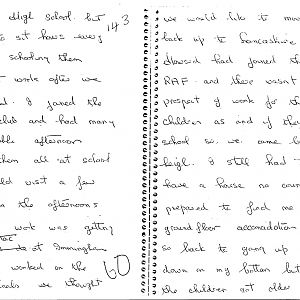 High school. but
143
sit hours every
schooling them
work after we
I joined the
club and had many
afternoon
them all at school
visit a few
in the afternoons
work was getting
at Immingham
worked on the
60
we thought
we would like to move
back up to Lancashire
Howard had joined the
RAF - and there wasn't
prospect of work for the
children as and if they
school so. we came b
Leigh. I still had
have a house no coun
prepared to find me
ground floor accomodation
so back to going up
down on my bottom but
the children got older